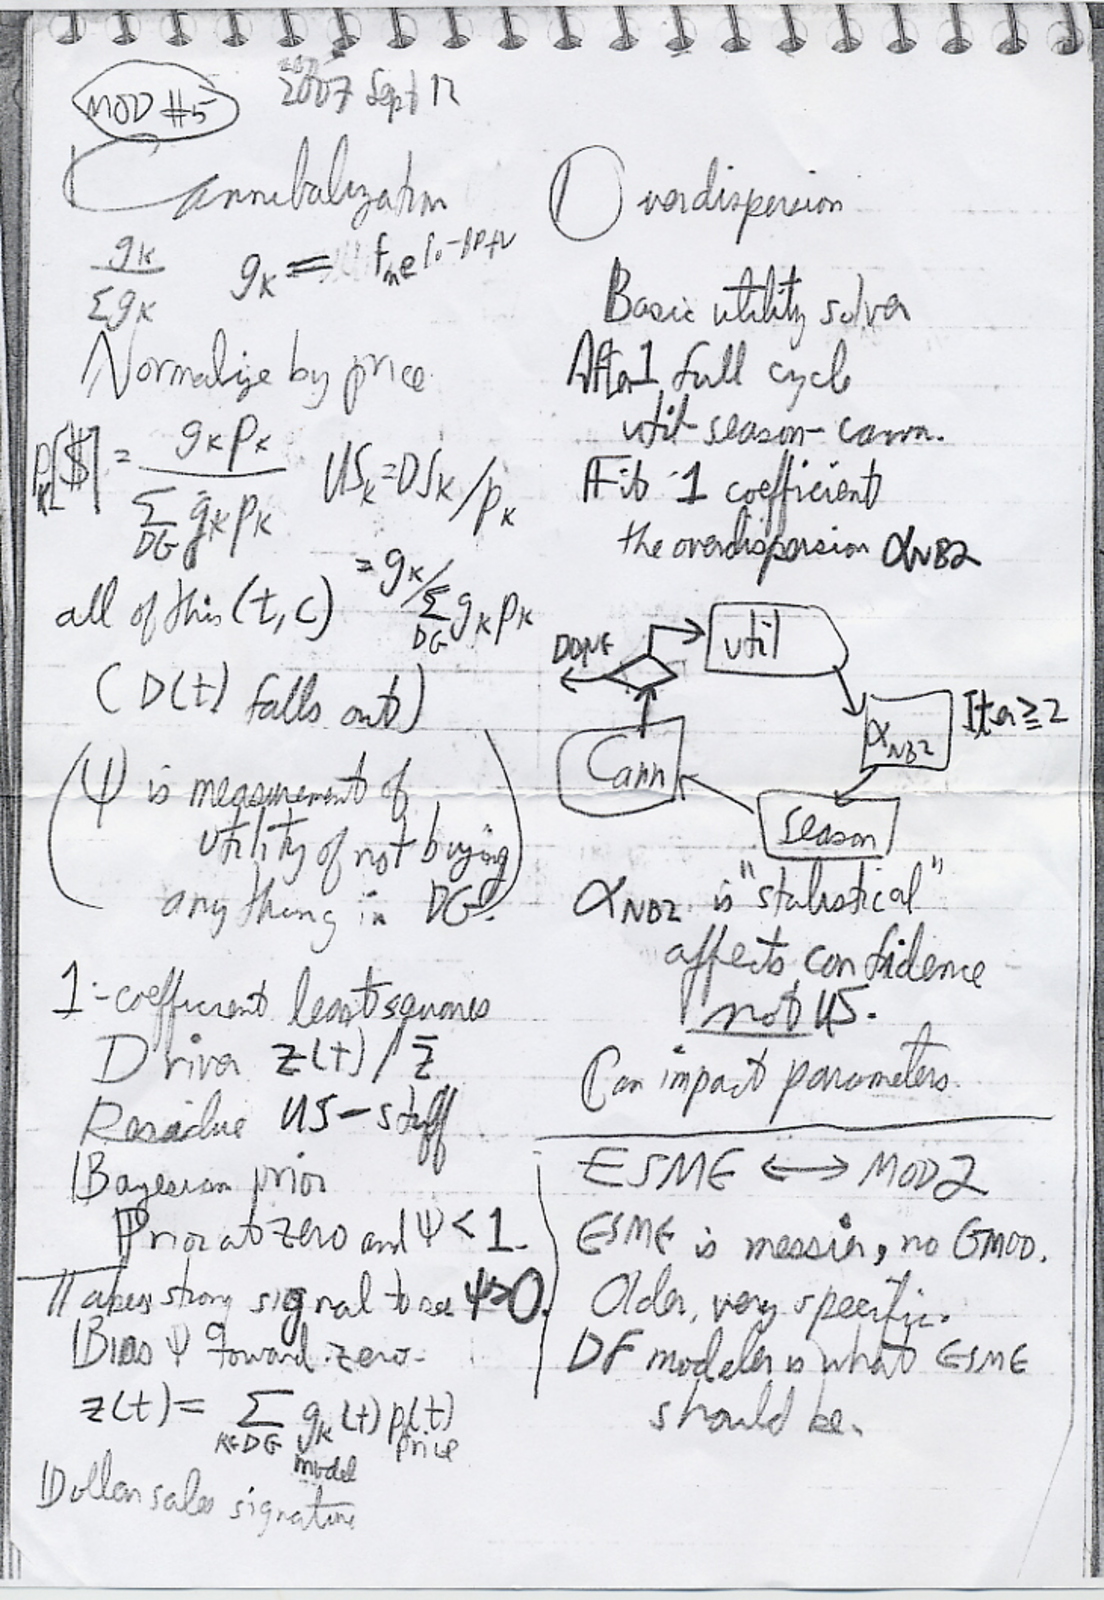 MOD #5
2007 Sept 12
Cannibalization
gK / ΣgK
gK =
Normalize by price
PK[$] = gK pK / Σ DG gK pK
USK = DSK / pK
= gK / Σ DG gK pK
all of this (t, c)
(D(t) falls out)
(Ψ is measurement of
utility of not buying
anything in DG.)
1-coefficient least squares
Driver z(t) / z̄
Residue US - stuff
Bayesian prior
Prior at zero and Ψ < 1.
Takes strong signal to see Ψ>0.
Bias Ψ toward zero.
z(t) = Σ K∈DG gK(t) p(t)
model price
Dollar sales signature
Overdispersion
Basic utility solver
After 1 full cycle
util-season-cann.
Fit 1 coefficient
the overdispersion αNB2
DONE
util
αNB2
Iter ≥ 2
Season
Cann
αNB2 is "statistical"
affects confidence
not US.
Can impact parameters.
ESME ⟷ MOD2
ESME is messier, no GMOD.
Older, very specific.
DF modeler is what ESME
should be.